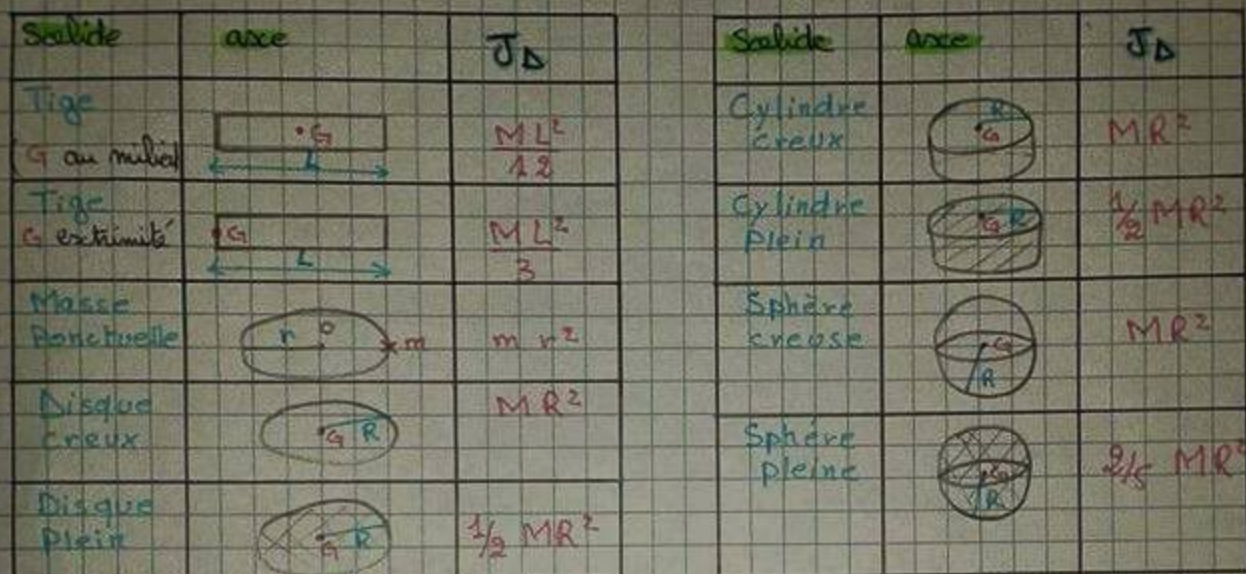 Scolide axe J∆
Tige
G au milieu
•G
L
ML²
12
Tige
G extrimité
G
L
ML²
3
Masse
Ponctuelle
r o m
m r²
Disque
creux
G R
MR²
Disque
Plein
G R
1/2 MR²
Scolide axe J∆
Cylindre
creux
R
G
MR²
Cylindre
plein
G R
1/2 MR²
Sphère
creuse
G
R
MR²
Sphère
pleine
G
R
2/5 MR²